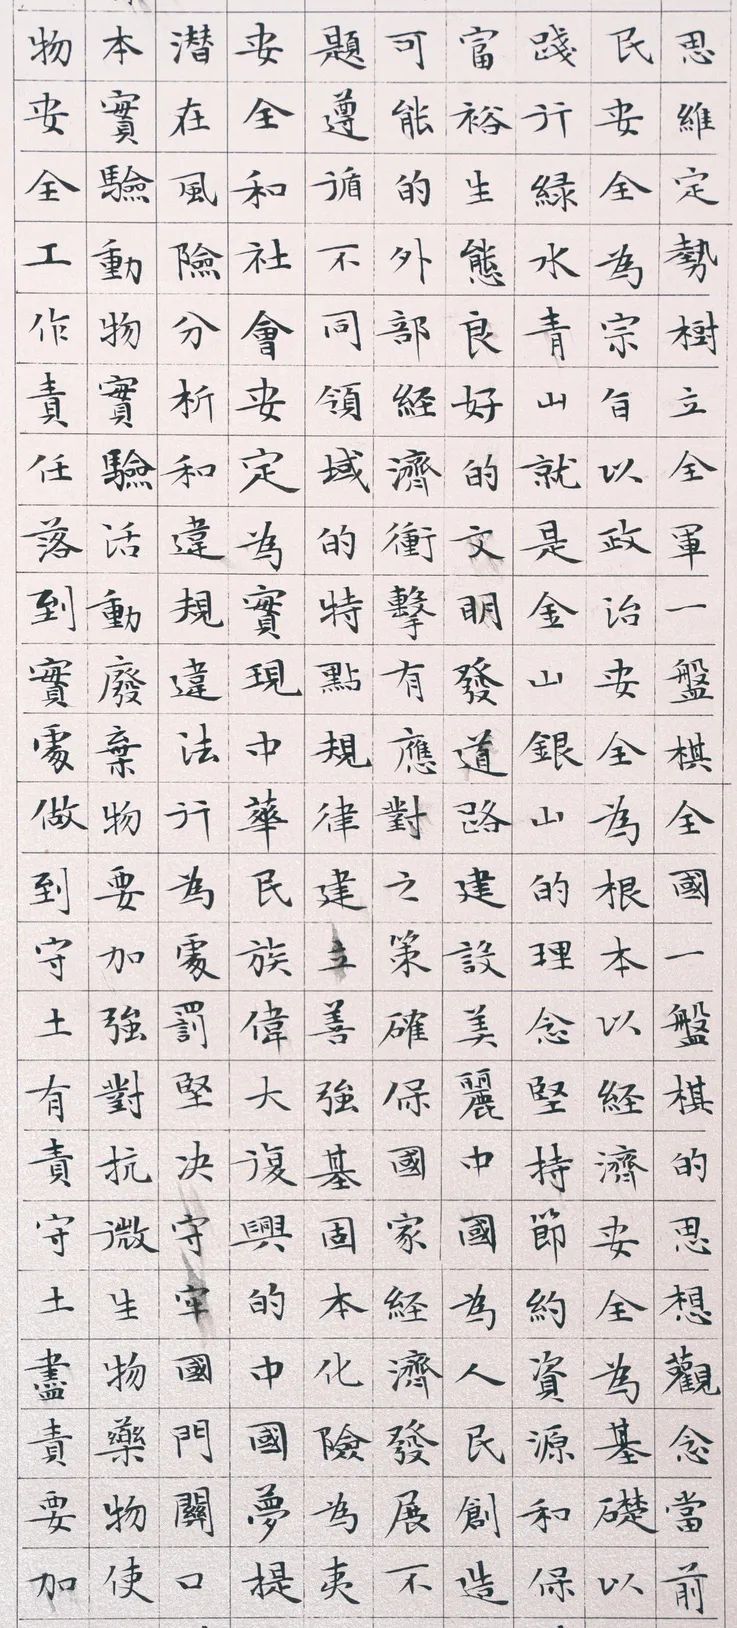 思維定勢樹立全軍一盤棋全國一盤棋的思想觀念當前
民安全為宗旨以政治安全為根本以経濟安全為基礎以
踐行緑水青山就是金山銀山的理念堅持節約資源和保
富裕生態良好的文明發道路建設美麗中國為人民創造
可能的外部経濟衝擊有應對之策確保國家経濟發展不
題遵循不同領域的特點規律建立善強基固本化險為夷
安全和社會安定為實現中華民族偉大復興的中國夢提
潜在風險分析和違規違法行為處罰堅决守牢國門關口
本實驗動物實驗活動廢棄物要加強對抗微生物藥物使
物安全工作責任落到實處做到守土有責守土盡責要加